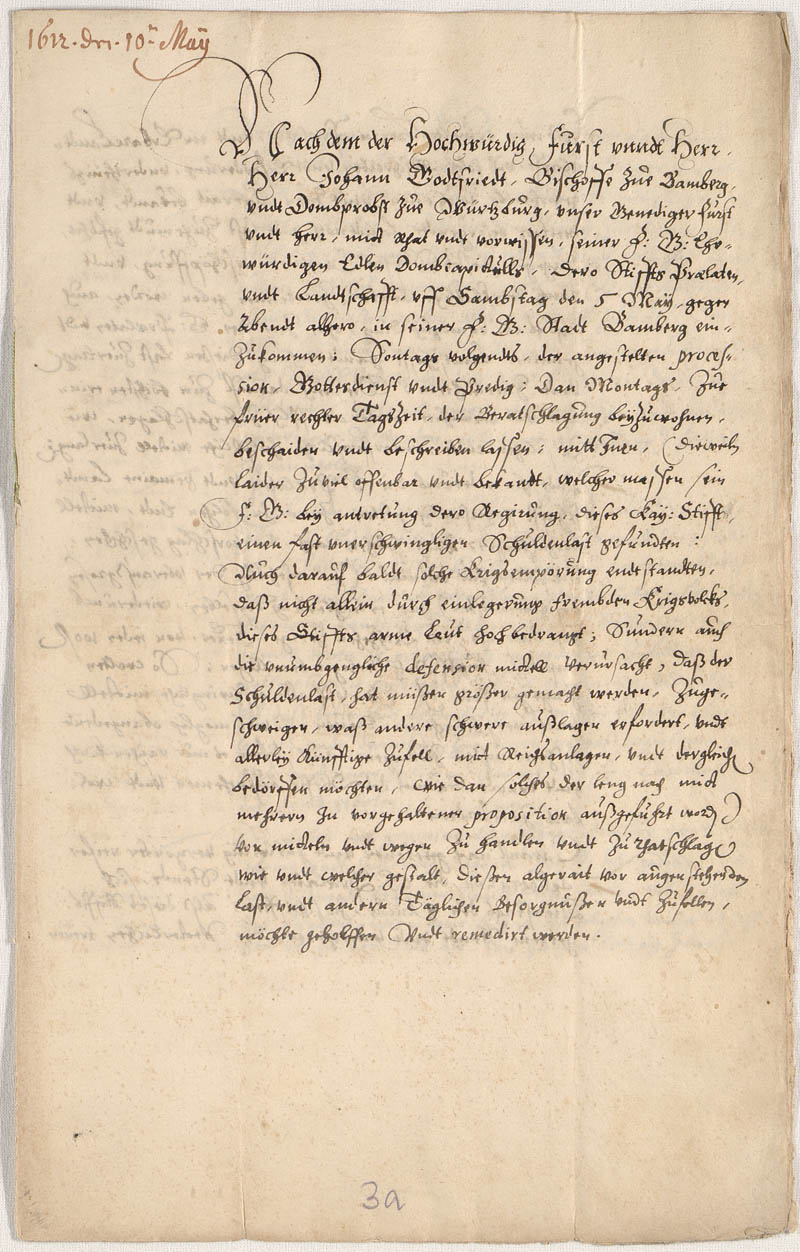 1612. den. 10ten May
Nachdem der Hochwürdig, Fürst vnndt Herr,
Herr Johann Godtfriedt, Bischoffe zue Bamberg,
vndt Dombprobst zue Würtzburg, vnser Genediger Fürst
vndt Herr, mitt Rhat vndt vorwissen, seiner F: G: Ehr-
würdigen Edlen Dombcapittulls, dero Stiffts Prælaten,
vndt Landtschafft, vff Sambstag den 5 May, gegen
Abendt alhero, in seiner F: G: Stadt Bamberg ein-
zukommen; Sontags volgendts, der angestelten proces-
sion, Gottesdienst vndt Predig; Dan Montags, zue
früer rechter Tagszeit, der Beratschlagung beyzuwohnen,
bescheiden vndt beschreiben lassen; mitt Inen, (dieweiln
laider zuviel offenbar vndt bekandt, welcher massen sein
F: G: bey antretung dero Regirung, dieses Kay: Stifft,
einen fast vnerschwingligen Schuldenlast gefundten:
Auch darauf baldt solche Krigsempörung endtstandten,
daß nicht allein durch einlegerung frembden Krigsvolcks,
dieses Stiffts arme Leut hochbedrangt; Sundern auch
die vnumbgengliche defension mittell verursacht, daß der
Schuldenlast, hat müßen größer gemacht werden, Zuge-
schweigen, waß andere schwere außlagen erfordert, vndt
allerley künfftige Zufell, mitt Reichsanlagen, vndt dergleich
bedörffen möchten, wie dan solches der leng nach mitt
mehrern In vorgehaltener proposition außgeführt word)
von mitteln vndt wegen zu handlen vndt zu rhatschlag
wie vndt welcher gestalt, dießen algerait vor augen stehenden
Last, vndt andern Täglichen besorgnußen vndt Zufellen,
möchte geholffen vndt remedirt werden.
3a